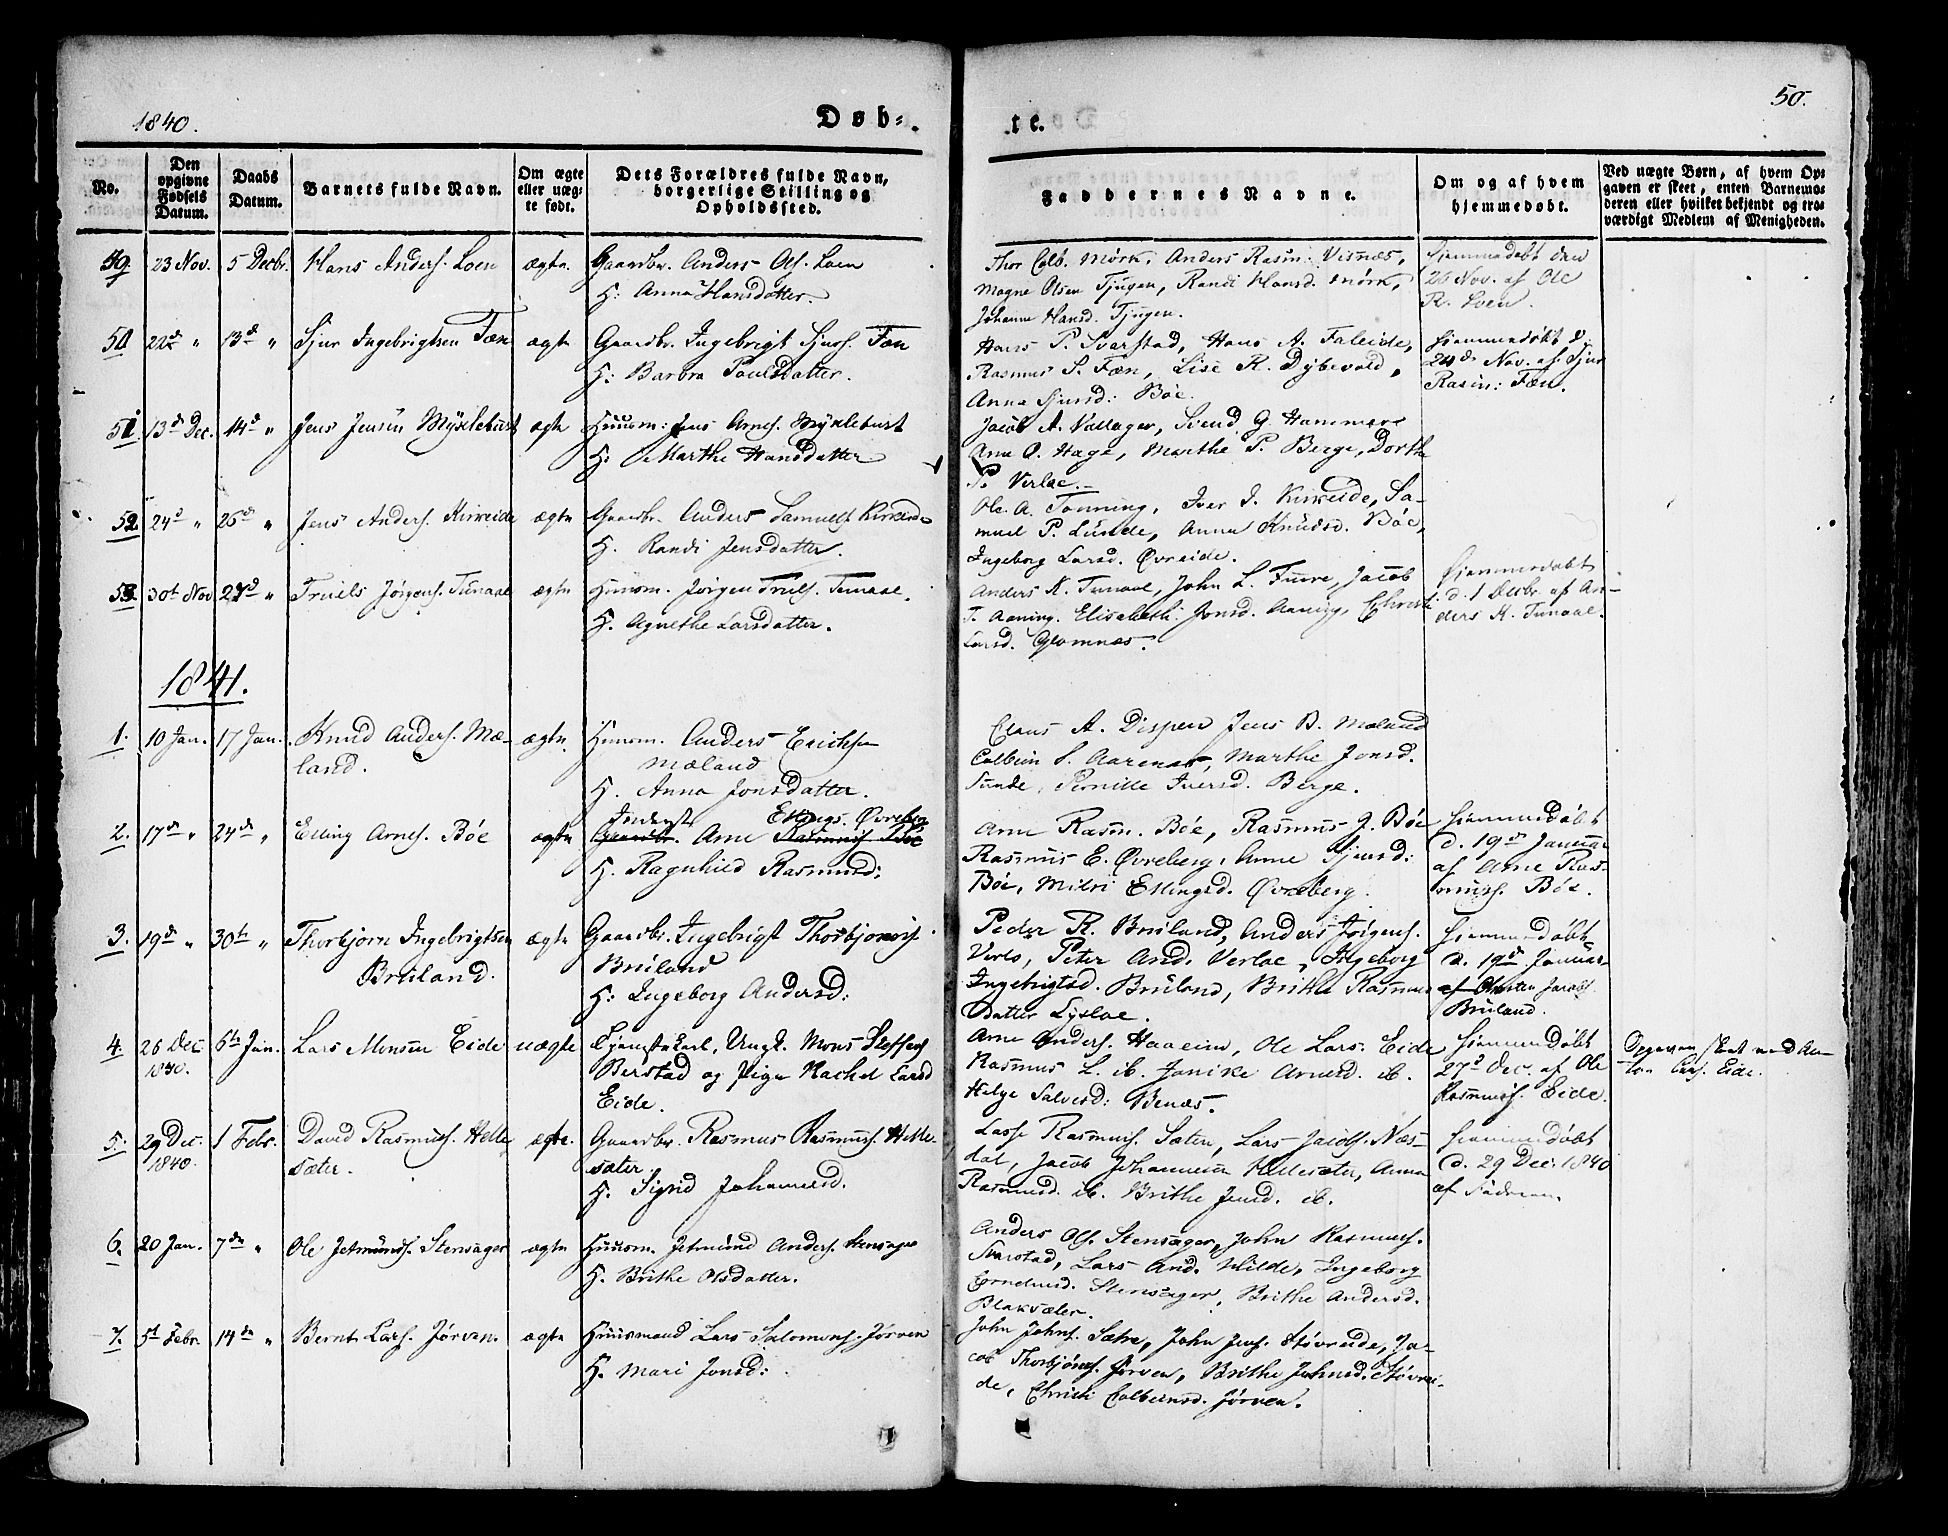 1840.
Døb=
te.
50.
No.
Den
opgivne
Fødsels
Datum.
Daabs
Datum.
Barnets fulde Navn.
Om ægte
eller uæg-
te født.
Dets Forældres fulde Navn,
borgerlige Stilling og
Opholdssted.
Faddernes Navne.
Om og af hvem
hjemmedøbt.
Ved uægte Børn, af hvem Op-
gaven er skeet, enten Barnemo-
deren eller hvilket bekjendt og tro-
værdigt Medlem af Menigheden.
49. 23 Nov. 5 Decbr. Hans Anders. Loen ægte. Gaardbr. Anders Ols. Loen
H: Anna Hansdatter.
Thor Colb. Mørk, Anders Rasm: Visnæs,
Magne Olsen Tjugen, Randi Hansd. Mørk,
Johanne Hansd. Tjugen.
Hiemmedøbt den
26 Nov. af Ole
R. Loen.
50 22de " 13de " Sjur Ingebrigtsen Fæn ægte Gaardbr. Ingebrigt Sjurs. Fæn
H: Barbra Poulsdatter.
Hans P. Svarstad, Hans A. Faleide,
Rasmus S. Fæn, Lise R. Dybevold,
Anna Sjursd: Bøe.
Hiemmedøbt d.
24de Nov. af Sjur
Rasm: Fæn.
51. 13de Dec. 14d " Jens Jensen Myklebust ægte Huusm: Jens Arnes. Myklebust
H: Marthe Hansdatter
Jacob A. Vallager, Svend G. Hammer
Ane O. Hage, Marthe P. Berge, Dorthe
P. Verlae.
52 24d " 26d " Jens Anders. Kirkeide ægte Gaardbr. Anders Samuels. Kirkeide
H. Randi Jensdatter.
Ole A. Tonning, Iver J. Kirkeide, Sa-
muel P. Lunde, Anna Knudsd. Bøe,
Ingeborg Larsd. Øvreide.
53. 30t Nov 27d " Truels Jørgens. Tunaal ægte Huusm. Jørgen Truls. Tunaal.
H. Agnethe Larsdatter.
Anders K. Tunaal, John L. Fure, Jacob
T. Aaning. Elisabeth Jonsd. Aaning, Christi
Larsd. Glomnæs.
Hiemmedøbt
d. 1 Decbr. af An-
ders K. Tunaal.
1841.
1. 10 Jan. 17 Jan. Knud Anders. Mæ-
land. ægte Huusm. Anders Erichsen
Mæland
H. Anna Jonsdatter.
Claus A. Dispen Jens B. Mæland
Colbein S. Aarenes, Marthe Jonsd.
Sunde, Pernille Iversd. Berge.
2. 17de " 24de " Elling Arnes. Bøe ægte Gaardbr. Arne Rasmuss. Bøe
Ellings. Øvreberg
H. Ragnhild Rasmusd:
Arne Rasm. Bøe, Rasmus J. Bøe
Rasmus E. Øvreberg, Anne Sjursd:
Bøe, Mildri Ellingsd. Øvreberg.
Hiemmedøbt
d. 19de Januar
af Arne Ras-
muss. Bøe.
3. 19de " 30te " Thorbjørn Ingebrigtsen
Bruland. ægte Gaardbr. Ingebrigt Thorbjørns.
Bruland
H: Ingeborg Andersd:
Peder R. Bruland, Anders Jørgens.
Verlo, Peter And. Verlae, Ingeborg
Ingebrigtsd. Bruland, Brithe Rasmus
datter Lyslae.
Hiemmedøbt
d. 19de Januar
af Jacobs.
Bruland.
4. 26 Dec.
1840. 6te Jan. Lars Monsen Eide uægte Tjenestekarl, Ungk. Mons Steffens.
Berstad og Pige Rachel Larsd
Eide.
Arne Anders. Haaheim, Ole Lars. Eide
Rasmus L. ib. Janike Arnesd. ib.
Helge Salvesd: Benæs.
Hiemmedøbt
27d Dec. af Ole
Rasmuss. Eide.
Opgaven skeet ved An-
ton Eide.
5. 29 Dec.
1840. 1 Febr. David Rasmuss. Helle
sæter. ægte. Gaardbr. Rasmus Rasmuss. Helle
sæter
H. Sigrid Johannesd.
Lasse Rasmuss. Sæten, Lars Jacobs. Næs-
dal, Jacob Johannesen Hellesæter, Anna
Rasmusd. ib. Brithe Jensd. ib.
Hiemmedøbt
d. 29 Dec. 1840
af Faderen.
6. 20 Jan. 7de " Ole Jetmunds. Stensager ægte Huusm. Jetmund Anders. Stensager
H. Brithe Olsdatter.
Anders Ols. Stensager, John Rasmuss.
Svarstad, Lars And. Hilde, Ingeborg
Cornelius. Stensager, Brithe Andersd.
Blaksæter.
7. 5t Febr. 14de " Bernt Lars. Jørven. ægte Huusmand Lars Salomons. Jørven
H. Mari Jonsd:
John Johns. Sætre, John Jens. Støvreide, Ja-
cob Thorbjørns. Jørven, Brithe Johnsd. Støvrei-
de, Christi Colbeinsd. Jørven.